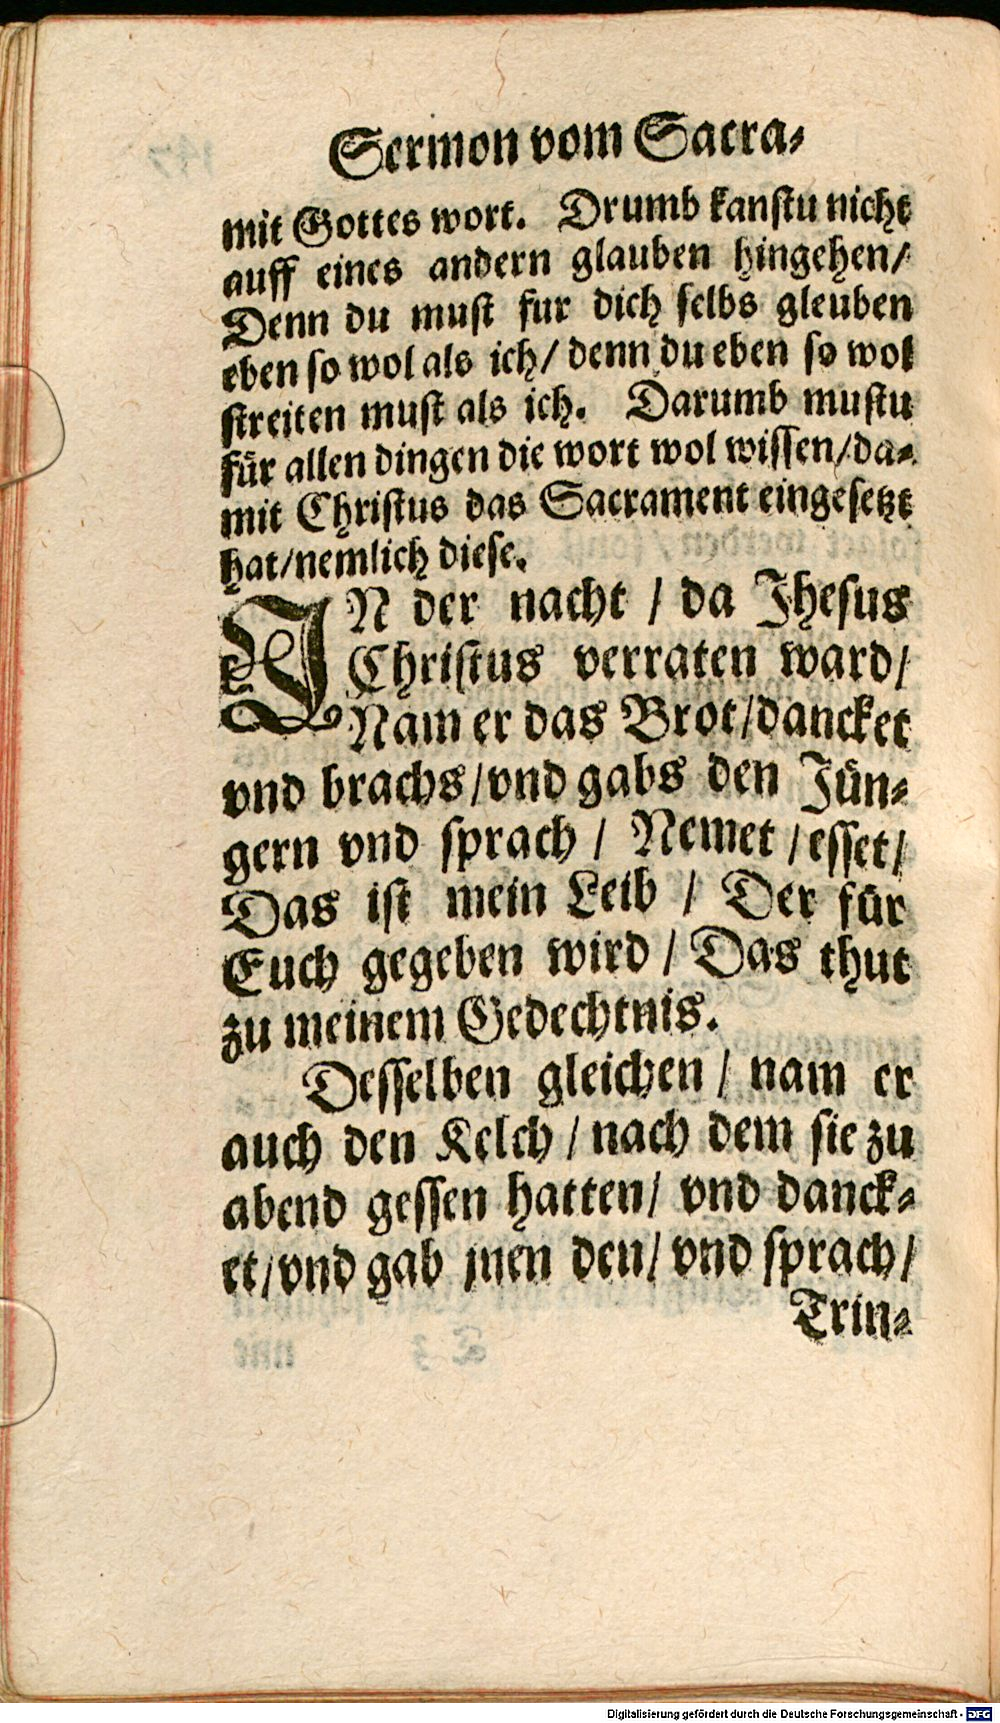 Sermon vom Sacra-
mit Gottes wort. Drumb kanstu nicht
auff eines andern glauben hingehen/
Denn du must fur dich selbs gleuben
eben so wol als ich/ denn du eben so wol
streiten must als ich. Darumb mustu
für allen dingen die wort wol wissen/da-
mit Christus das Sacrament eingesetzt
hat/nemlich diese.
IN der nacht / da Jhesus
Christus verraten ward/
Nam er das Brot/dancket
vnd brachs/vnd gabs den Jün-
gern vnd sprach / Nemet / esset/
Das ist mein Leib / Der für
Euch gegeben wird / Das thut
zu meinem Gedechtnis.
Desselben gleichen / nam er
auch den Kelch / nach dem sie zu
abend gessen hatten/ vnd danck-
et/vnd gab jnen den/ vnd sprach/
Trin-
Digitalisierung gefördert durch die Deutsche Forschungsgemeinschaft - DFG